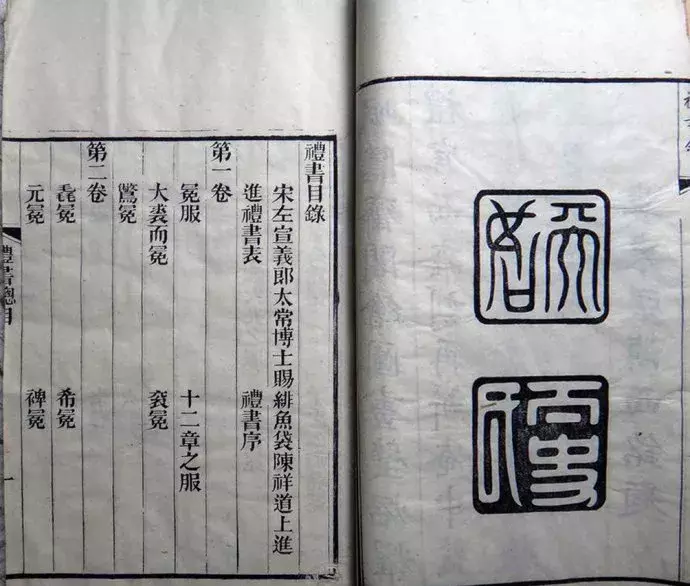 禮書目錄
宋左宣義郎太常博士賜緋魚袋陳祥道上進
進禮書表 禮書序
第一卷
冕服 十二章之服
大裘而冕 袞冕
鷩冕
第二卷
毳冕 希冕
元冕 裨冕
禮書總目 一